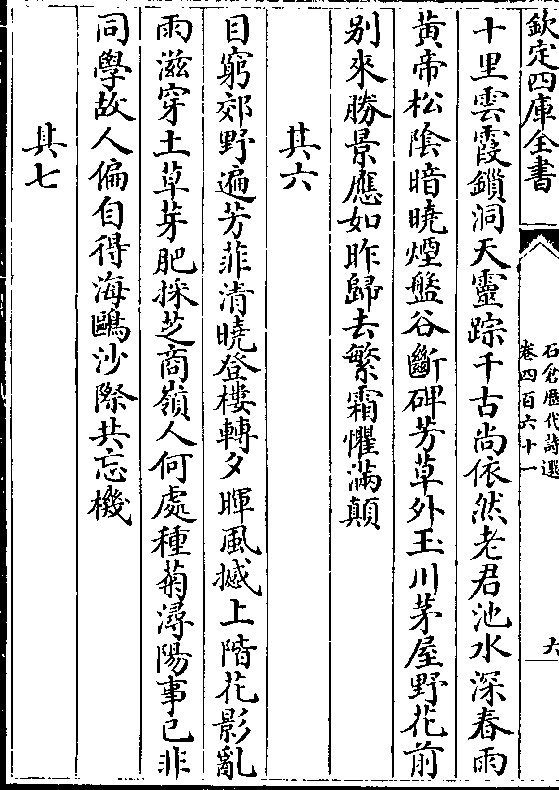 欽定四庫全書
石倉歷代詩選
卷四百六十一
六
十里雲霞鎖洞天靈踪千古尚依然老君池水深春雨
黃帝松陰暗曉煙盤谷斷碑芳草外玉川茅屋野花前
别來勝景應如昨歸去繁霜懼滿顛
其六
目窮郊野遍芳菲清曉登樓轉夕暉風撼上階花影亂
雨滋穿土草芽肥採芝商嶺人何處種菊潯陽事已非
同學故人偏自得海鷗沙際共忘機
其七